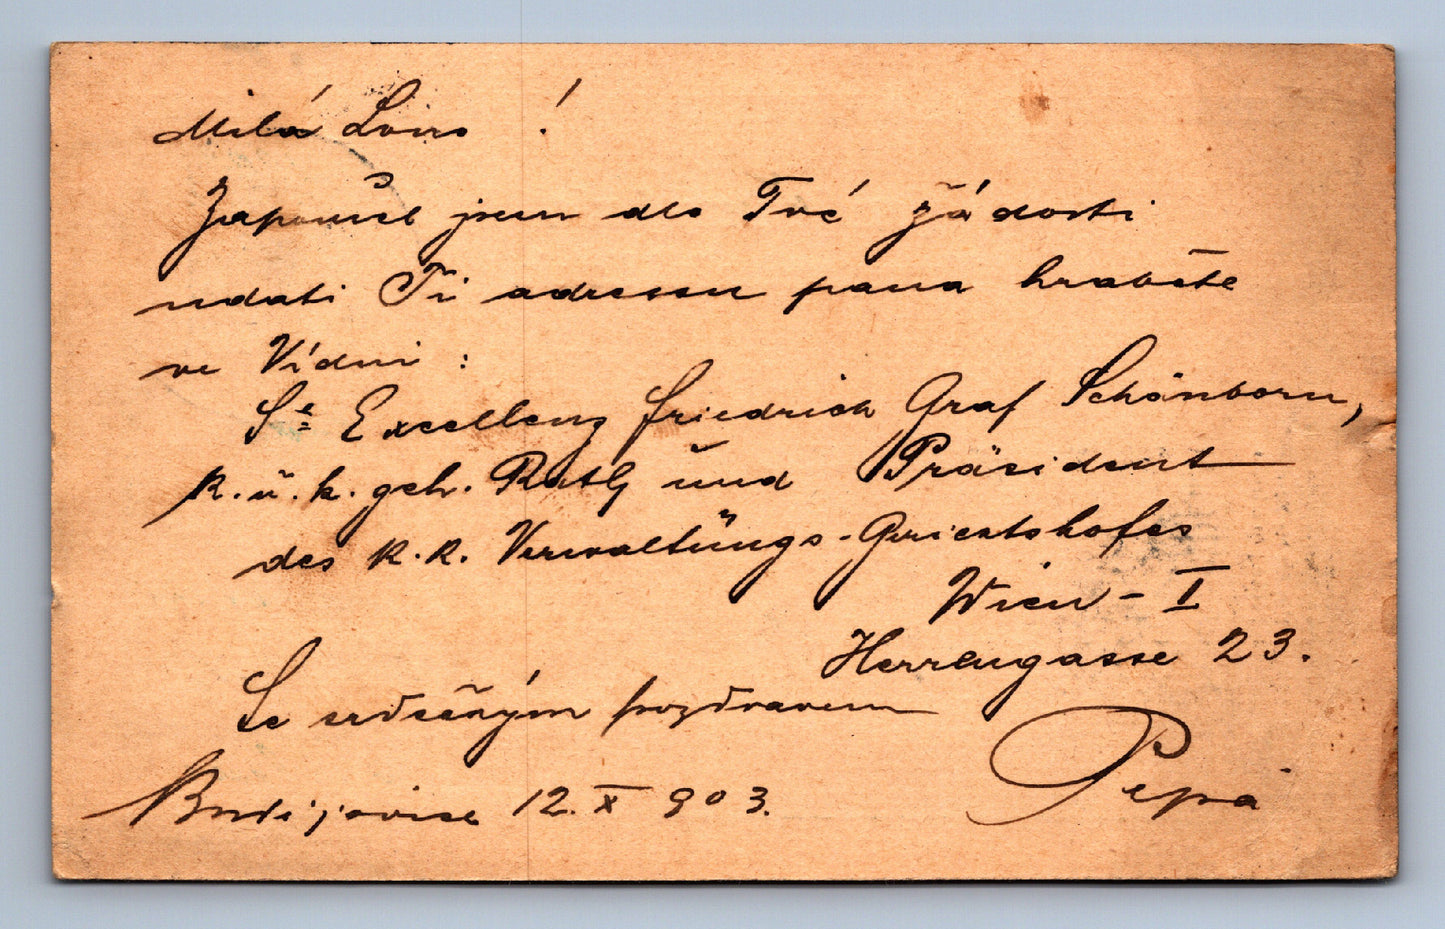 Milá Loiso!
Zapomněl jsem dle Tvé žádosti
udati Ti adressu pana hraběte
ve Vídni:
Se Excellenz Friedrich Graf Schönborn,
k. u. k. geh. Rath und Präsident
des k. k. Verwaltungs-Gerichtshofes
Wien - I
Herrengasse 23.
Se srdečným pozdravem
Pepa
Budějovice 12. X 903.